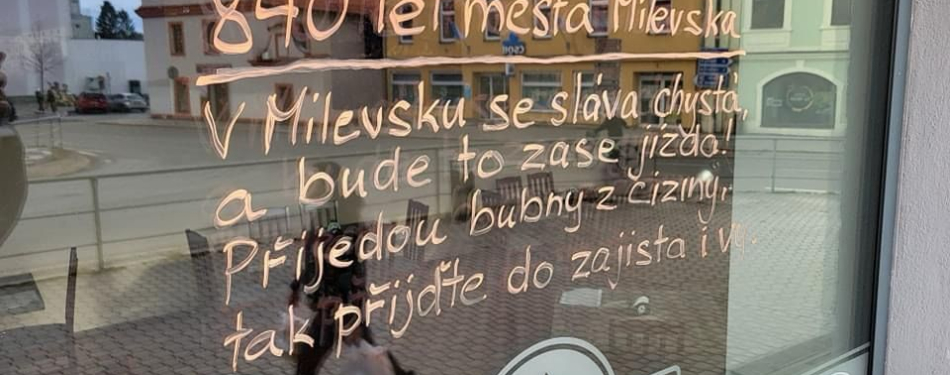 840 let města Milevska
V Milevsku se sláva chystá,
a bude to zase jízda!
Přijedou bubny z ciziny,
tak přijďte do zajista i vy.